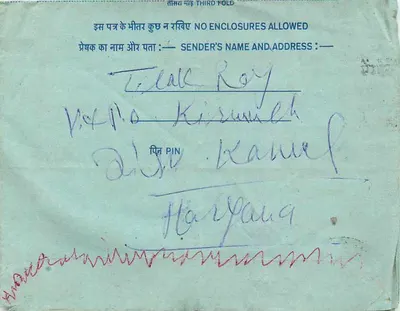 तीसरा मोड़ THIRD FOLD
इस पत्र के भीतर कुछ न रखिए NO ENCLOSURES ALLOWED
प्रेषक का नाम और पता :— SENDER'S NAME AND ADDRESS :—
Tilak Raj
V&P.O
पिन PIN
Distt Karnal
Haryana